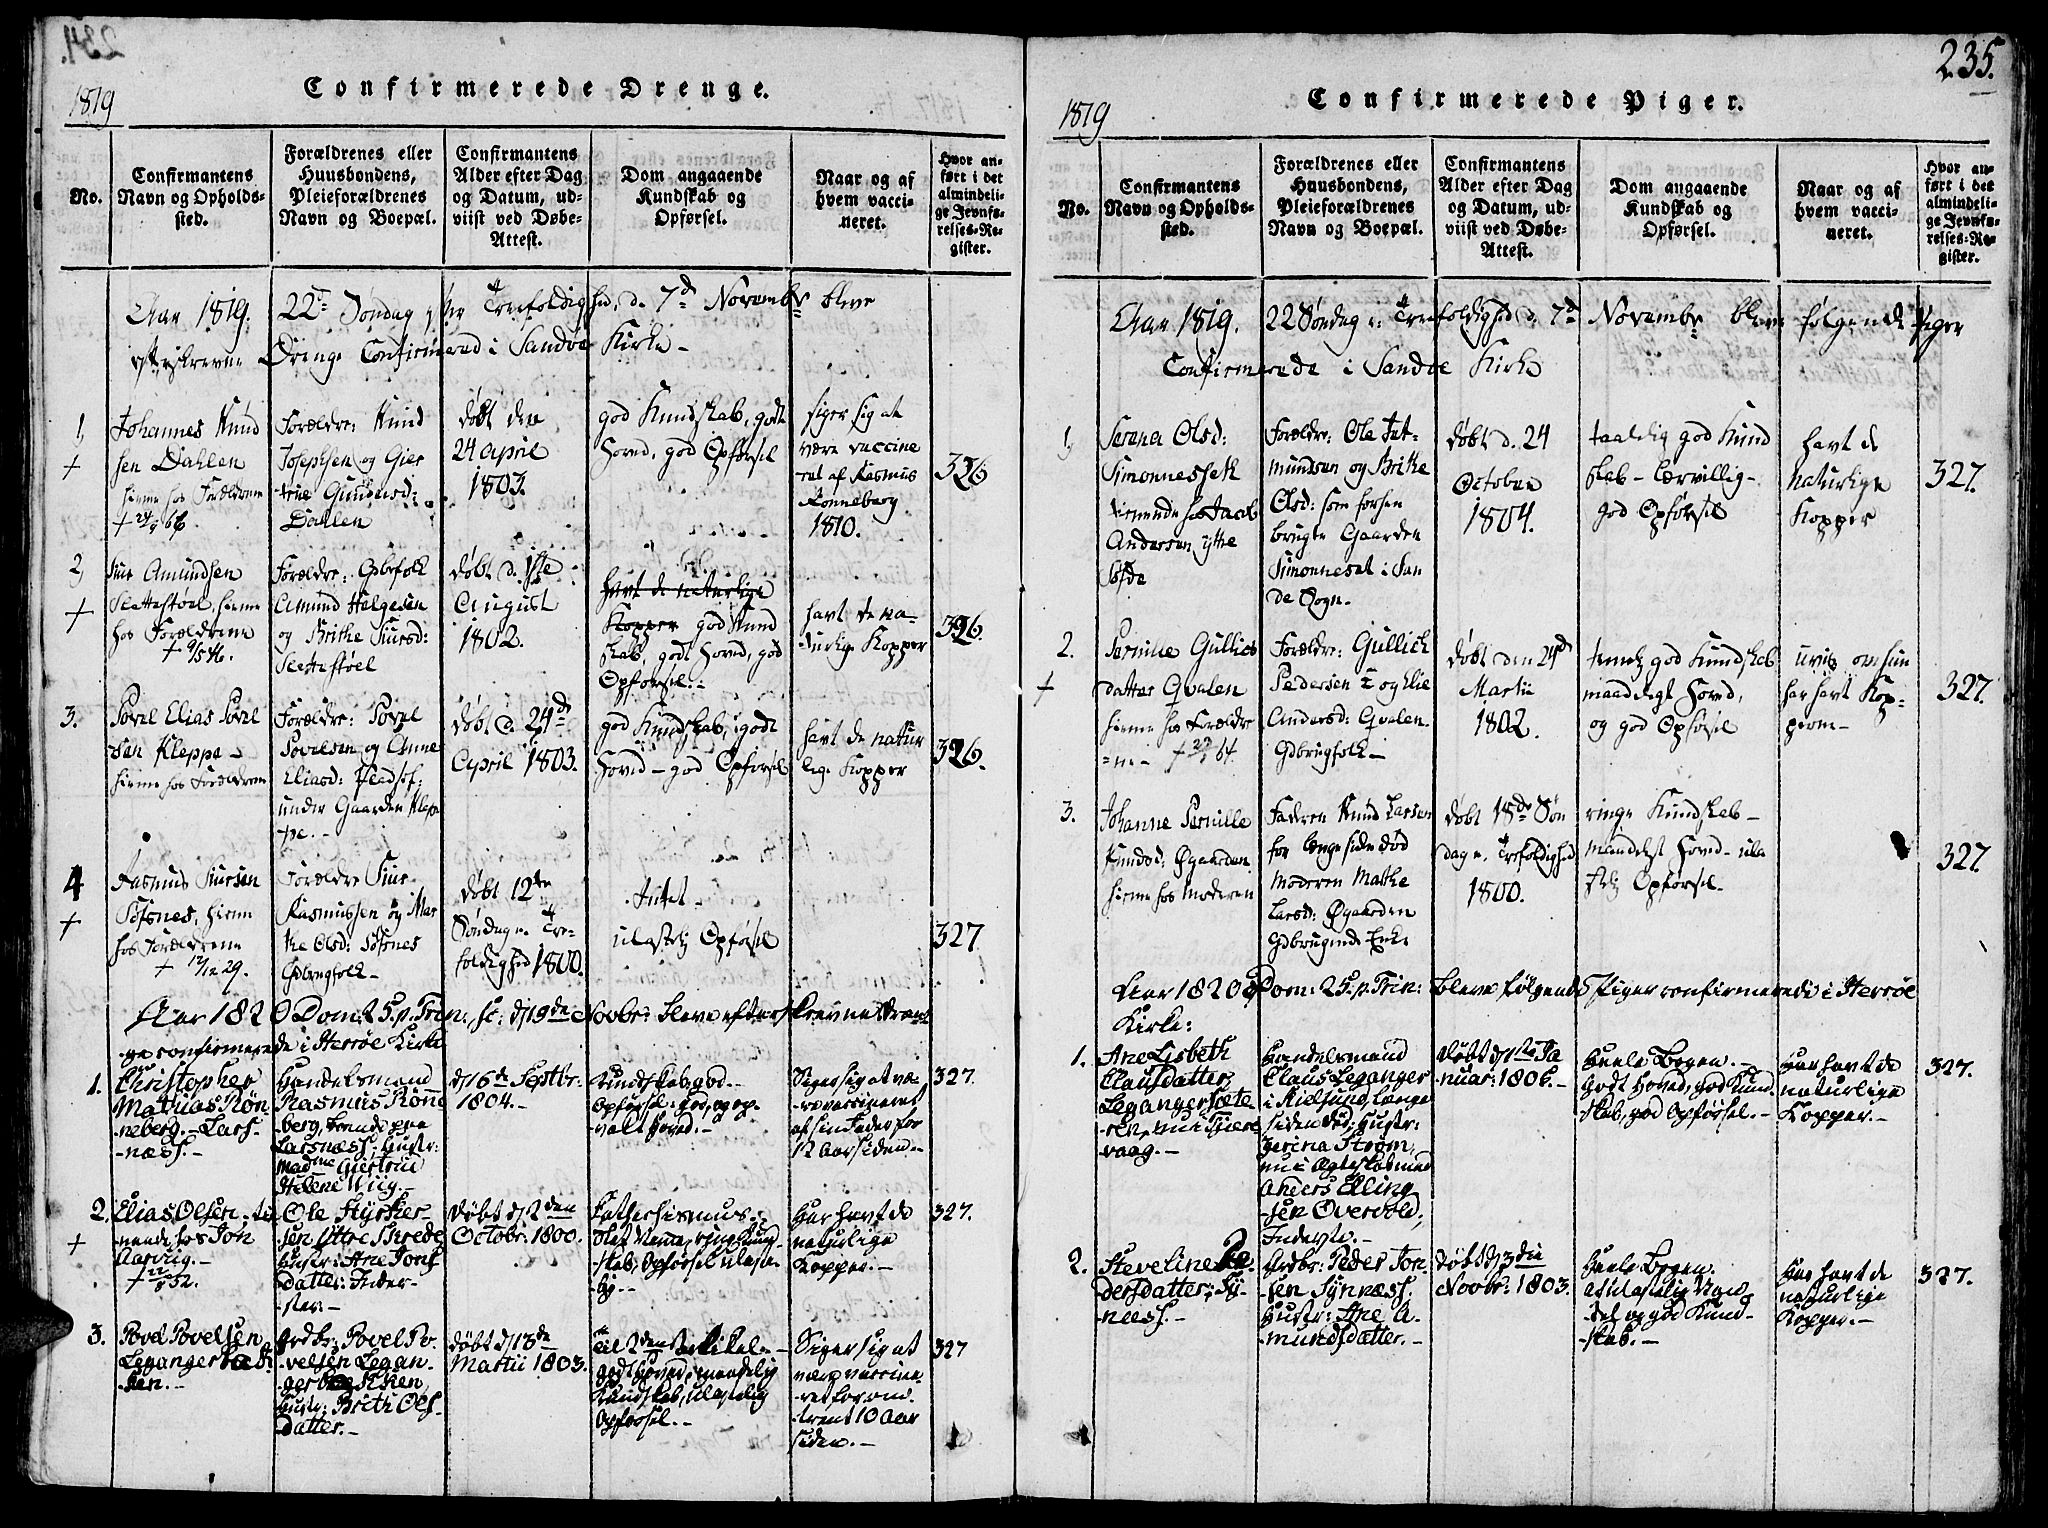 234.
Confirmerede Drenge.
1819
No.
Confirmantens
Navn og Opholds-
sted.
Forældrenes eller
Huusbondens,
Pleieforældrenes
Navn og Boepæl.
Confirmantens
Alder efter Dag
og Datum, ud-
viist ved Døbe-
Attest.
Dom angaaende
Kundskab og
Opførsel.
Naar og af
hvem vacci-
neret.
Hvor an-
ført i det
almindeli-
ge Jevnfø-
relses-Re-
gister.
Aar 1819. 22de Søndag efter Trefoldighed, d. 7de Novembr bleve
efterskrevne Drenge Confirmered i Sandøe Kirke -
1,
+
Johannes Knud
sen Dahlen
hiemme hos Forældrene
+ 24/9 66.
Forældre: Knud
Josephsen og Gier
true Gundersd:
Dahlen
døbt den
24 april
1803.
god Kundskab, godt
Hoved, god Opførsel
siger sig at
være vaccine
ret af Rasmus
Rønneberg
1810.
326
2,
+
Siur Amundsen
Slettestøel, hiemme
hos Forældrene
+ 9/5 46.
Forældre: Gbrfolk
Amund Helgesen
og Brithe Siursd:
Slettestøel
døbt d. 1ste
August
1802.
havt de naturlige
Kopper god Kund
skab, godt Hoved, god
Opførsel.-
havt de na-
turlige Kopper
326.
3.
Povel Elias Povel
sen Kleppe -
hiemme hos Forældrene
Forældre: Povel
Povelsen og Anne
Eliasd: Pladsf:
under Gaarden Klep
pe. -
døbt d. 24de
April 1803.
god Kundskab, godt
Hoved - god Opførsel
havt de natur
lige Kopper
326.
4
+
Rasmus Siursen
Søfsnes, hiemme
hos Forældrene
+ 12/12 29.
Forældre Siur
Rasmussen og Mar
the Olsd: Søfsnes
Gdbrugfolk -
døbt 12te
Søndag e. Tre-
foldighed 1800.
Intet -
ulastelig Opførsel
327
Aar 1820 Dom: 25. p. Trin: sc: d 19de Novbr: bleve efterskrevne Dren
ge confirmerede i Herrøe Kirke
1.
Christopher
Mathias Røn
neberg. - Lars-
næss. -
Handelsmand
Rasmus Røne
berg, boende paa
Larsnæss; Hustr:
Madme Giertrud
Helene Wiig. -
d 16de Septbr:
1804. -
Kundskab god. -
Opførsel: god, og op-
vakt Hoved. -
Siger sig at væ-
re vaccineret
af sin Fader for
12 Aar siden. -
327.
2.
+
Elias Olsen - tie
nende hos Jon
Aarvig. -
+ 22/8 52.
Ole Styrker-
sen Ytre Skrede
Hustr: Ane Jons
datter: Inder-
ster. -
døbt d 2den
Octobr: 1800.
Catherhismus -
slet Nemme, ringe Kund
skab, Opførsel ulaste-
lig. -
Har havt de
naturlige
Kopper. -
327.
3.
Povel Povelsen
Leganger
Ardbr: Povel Po-
velsen Legan-
ger
Hustr: Brith Ols-
datter. -
døbt d 13de
Martii 1803.
Til 2den Artikel. -
godt Hoved, maadelig
Kundskab, ulastelig
Opførsel. -
Siger sig at
være vaccine-
ret for om-
trent 10 Aar
siden. -
327
235.
Confirmerede Piger.
1819
No.
Confirmantens
Navn og Opholds-
sted.
Forældrenes eller
Huusbondens,
Pleieforældrenes
Navn og Boepæl.
Confirmantens
Alder efter Dag
og Datum, ud-
viist ved Døbe-
Attest.
Dom angaaende
Kundskab og
Opførsel.
Naar og af
hvem vacci-
neret.
Hvor an-
ført i det
almindeli-
ge Jevnfø-
relses-Re-
gister.
Aar 1819. 22 Søndag e: Trefoldighed d. 7de Novembr bleve følgende Piger
Confirmerede i Sandøe Kirke
1,
Serena Olsd:
Simonnesset
tienende hos Jacob
Andersen ytre
Søfde
Forældre: Ole Tat-
mundsen og Brithe
Olsd: som forhen
brugte Gaarden
Simonneset i San
de Sogn. -
døbt d. 24
October
1804.
taalelig god Kund
skab - lærvillig -
god Opførsel
havt de
naturlige
Kopper
327.
2.
+
Pernille Gullics
datter Qvalen
hiemme hos Forældre
ne - + 27/5 64.
Forældre: Gullick
Pedersen og Elie
Andersd: Qvalen.
Gdbrugfolk -
døbt den 24de
Martii
1802.
temelig god Kundskab
maadeligt Hoved,
og god Opførsel
uvis om hun
har havt Kop-
perne -
327.
3.
Johanne Pernille
Knudsd: Øgaarden
hiemme hos Moderen
Faderen Knud Larsen
for længe siden død
Moderen Marthe
Larsd: Øgaarden
Gdbrugende Enke
døbt 18de Søn
dag e. Trefoldighed
1800.
ringe Kundskab -
maadeligt Hoved - ula
stelig Opførsel -
327.
Aar 1820 Dom: 25. p. Trin: bleve følgende Piger confirmerede i Herrøe
Kirke:
1.
Ane Lisbeth
Clausdatter
Leganger Sæte-
ren, nu i Tjøre
vaag. -
Handelsmand
Claus Leganger
i Kidsund, længe
siden død; Hustr:
Zerina Strøm,
nu i Ægteskab med
Anders Elling
sen Overvold;
Inderste. -
døbt d 1ste Ja
nuar: 1806. -
Heele Bogen. -
godt Hoved, god Kund
skab, god Opførsel. -
Har havt de
naturlige
Kopper. -
327.
2.
Steveline Pe-
dersdatter, Sy-
næss. -
Ardbr: Peder Jon-
sen Synnæss.
Hustr: Ane A-
mundsdatter. -
døbt d 3die
Novbr: 1803.
Heele Bogen.
af ulastelig Van-
del og god Kund-
skab. -
Har havt de
naturlige
Kopper. -
327.